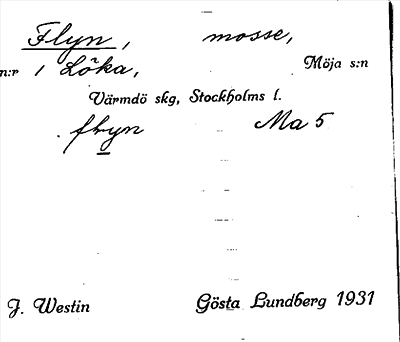 Flyn, mosse,
n:r 1 Löka, Möja s:n
Värmdö skg, Stockholms l.
flyn Ma 5
J. Westin Gösta Lundberg 1931